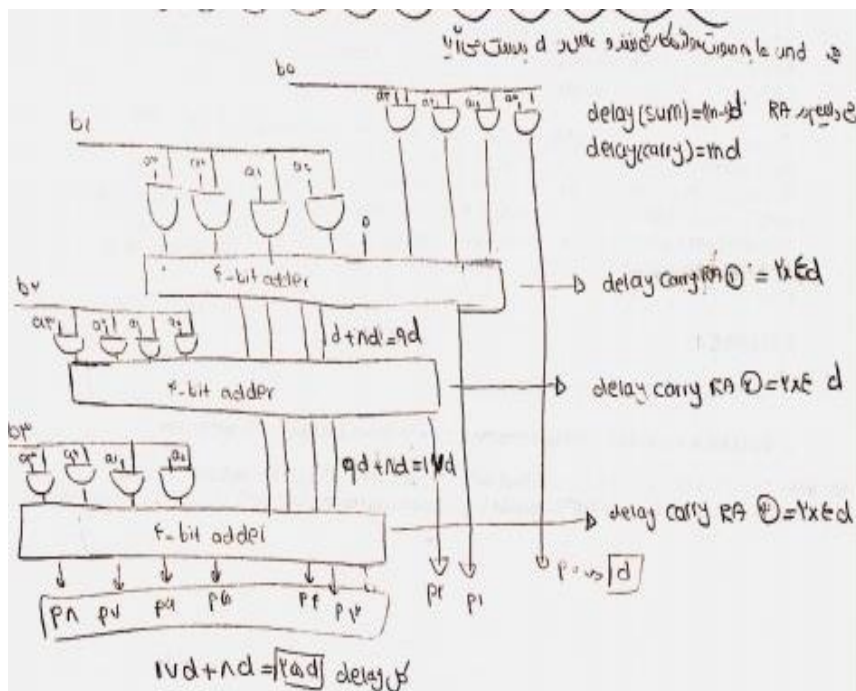 and ها به صورت موازی کار می‌کنند و
d بدست می‌آید
b۰
a۳ a۲ a۱ a۰
RA
delay(carry)=۲nd
b۱
a۳ a۲ a۱ a۰
۰
۴-bit adder
delay carry RA ① = ۲x۴d
b۲
a۳ a۲ a۱ a۰
d+۸d=۹d
۴-bit adder
delay carry RA ② = ۲x۴ d
b۳
a۳ a۲ a۱ a۰
۹d+۸d=۱۷d
۴-bit adder
delay carry RA ③ = ۲x۴d
p۸ p۷ p۶ p۵ p۴ p۳ p۲ p۱ p۰ d
۱۷d+۸d=۲۵d delay کل